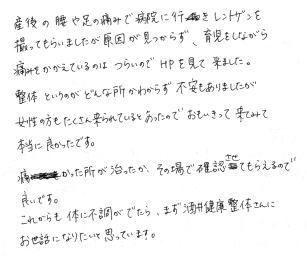 産後の腰や足の痛みで病院に行きレントゲンを
撮ってもらいましたが原因が見つからず、育児をしながら
痛みをかかえているのはつらいのでHPを見て来ました。
整体というのがどんな所かわからず不安もありましたが
女性の方もたくさん来られているとあったのでおもいきって来てみて
本当に良かったです。
痛かった所が治ったか、その場で確認させてもらえるので
良いです。
これからも体に不調がでたら、まず酒井健康整体さんに
お世話になりたいと思っています。